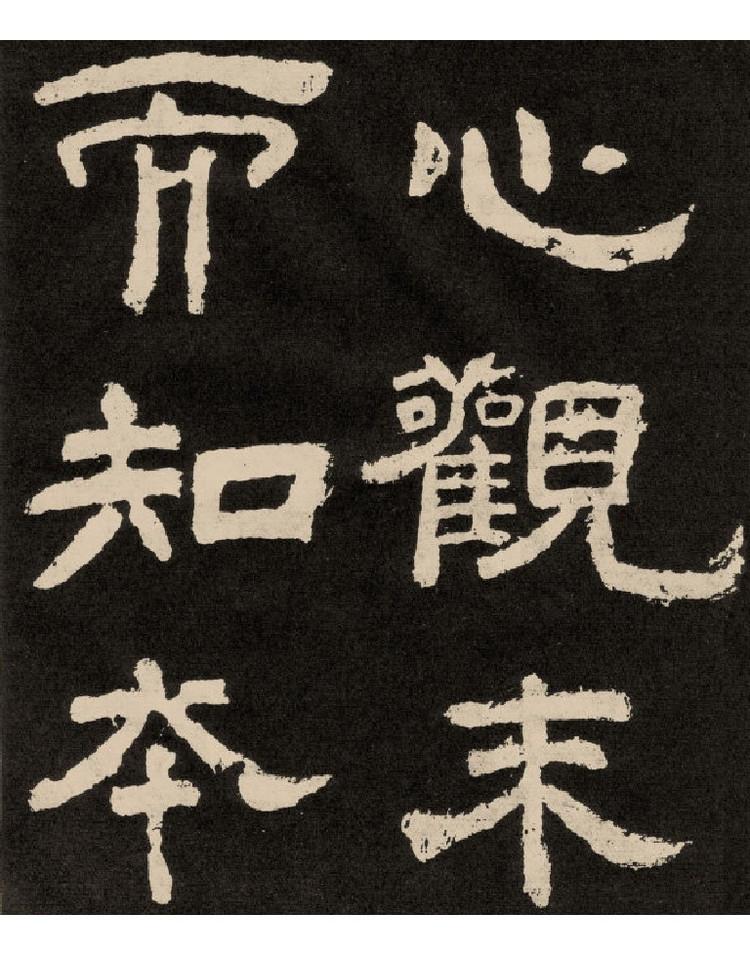 心觀末
而知夲